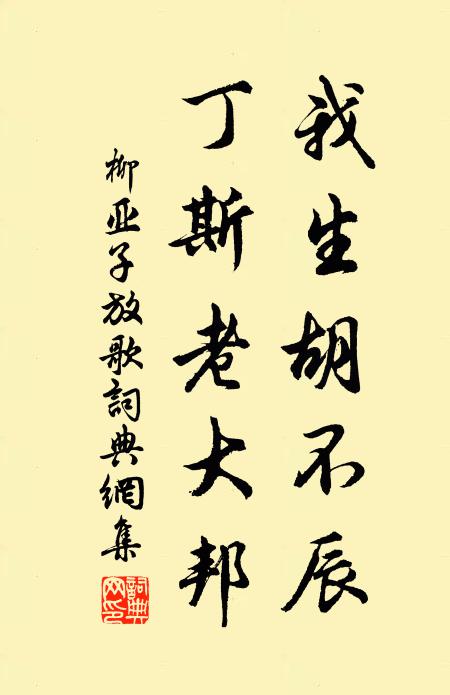 我生胡不辰
丁斯老大邦
柳亚子放歌詞典網集
詞典网印